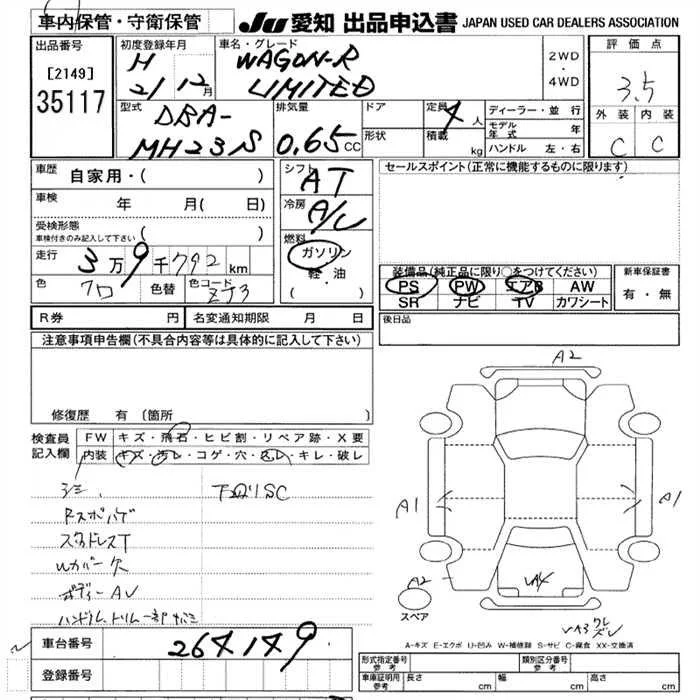 車内保管・守衛保管
JU 愛知 出品申込書 JAPAN USED CAR DEALERS ASSOCIATION
出品番号
[2149]
35117
初度登録年月
H
21 12月
車名・グレード
WAGON-R
LIMITED
2WD
・
4WD
評価点
3.5
外装 内装
C C
型式
DBA-
MH23S
排気量
0.65 CC
ドア
形状
定員 4 人
積載 kg
ディーラー・並行
モデル年式 年
ハンドル 左・右
車歴 自家用・( )
車検 年 月( 日)
受検形態
車検付きのみ記入して下さい ( )
走行 3万9千792km
色 クロ 色替 色コード ZJ3
シフト AT
冷房 A/C
燃料
ガソリン
軽・油
( )
セールスポイント(正常に機能するものに限ります)
装備品(純正品に限り○をつけてください)
PS PW エアB AW
SR ナビ TV カワシート
新車保証書
有・無
R券 円 名変通知期限 月 日
後日品
注意事項申告欄(不具合内容等は具体的に記入して下さい)
修復歴 有(箇所 )
検査員
記入欄
FW キズ・飛石・ヒビ割・リペア跡・X要
内装 キズ・汚レ・コゲ・穴・スレ・キレ・破レ
シミ
下回りSC
Rスポハゲ
スタッドレスT
Wカバー欠
ボディーAU
ハンドル、トリム一部
A2
A1
A1
A2
スペア
A-キズ E-エクボ U-凹み W-補修跡 S-サビ C-腐食 XX-交換済
車台番号 264149
登録番号
形式指定番号
参考
類別区分番号
参考
車庫証明用
参考
長さ cm 幅 cm 高さ cm